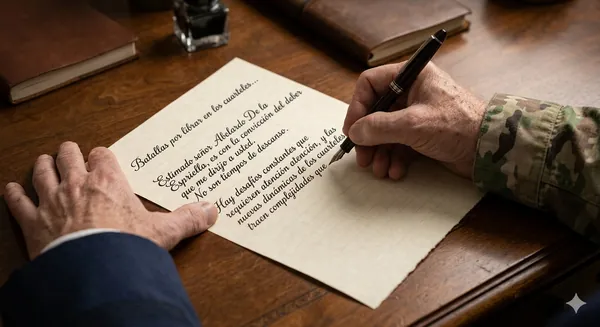 Batallas por librar en los cuarteles...
Estimado señor Abelardo De la
Espriella, es con la convicción del deber
que me dirijo a usted.
No son tiempos de descanso.
Hay desafíos constantes que
requieren atención atención, y las
nuevas dinámicas de los cuarteles
traen complejidades que